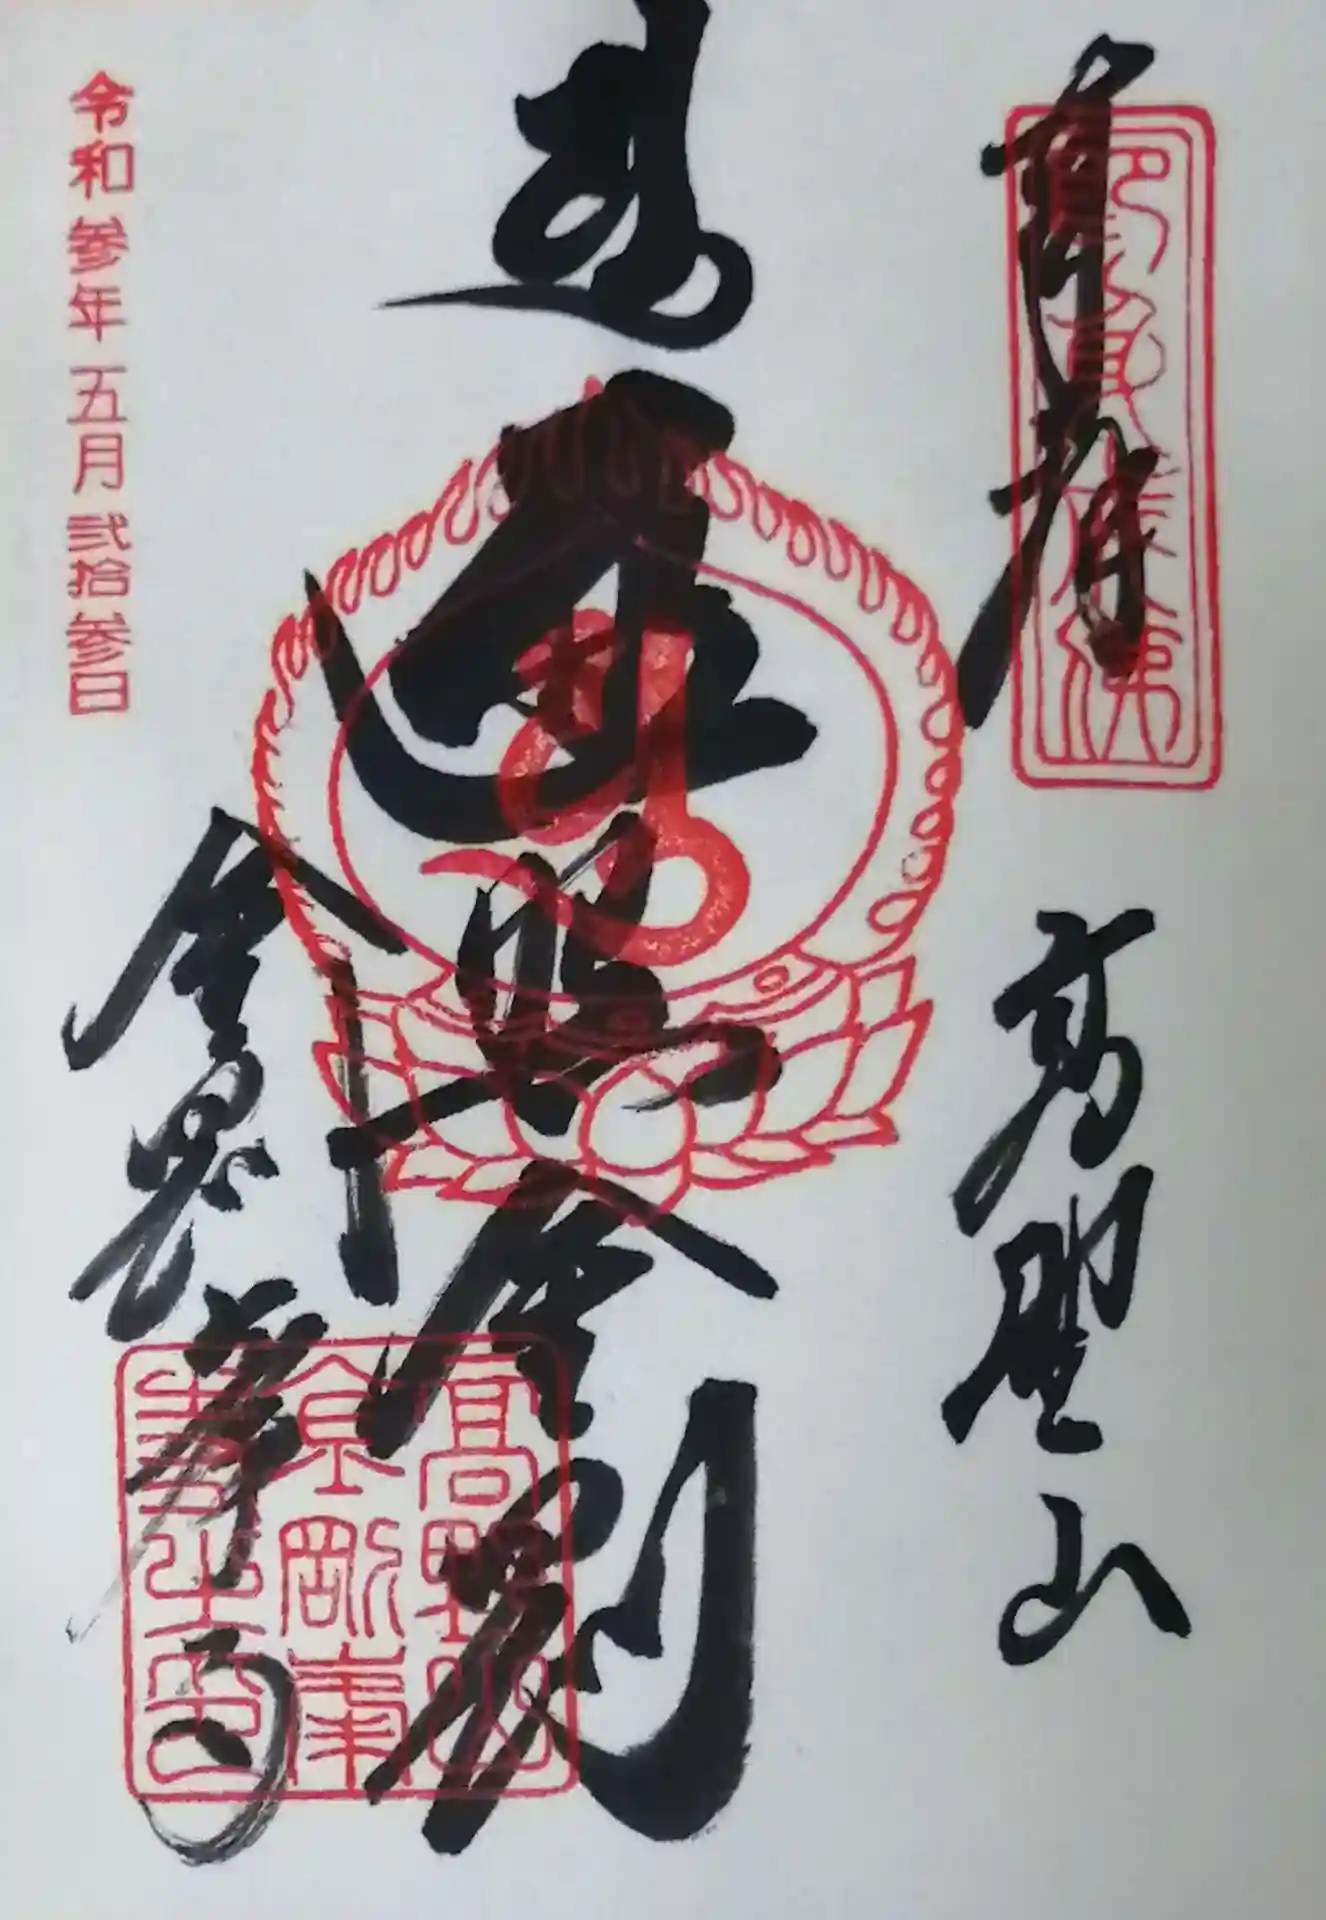 奉拝
高野山
遍照金剛
金剛峯寺
高野山
金剛峯
寺之印
令和参年五月弐拾参日